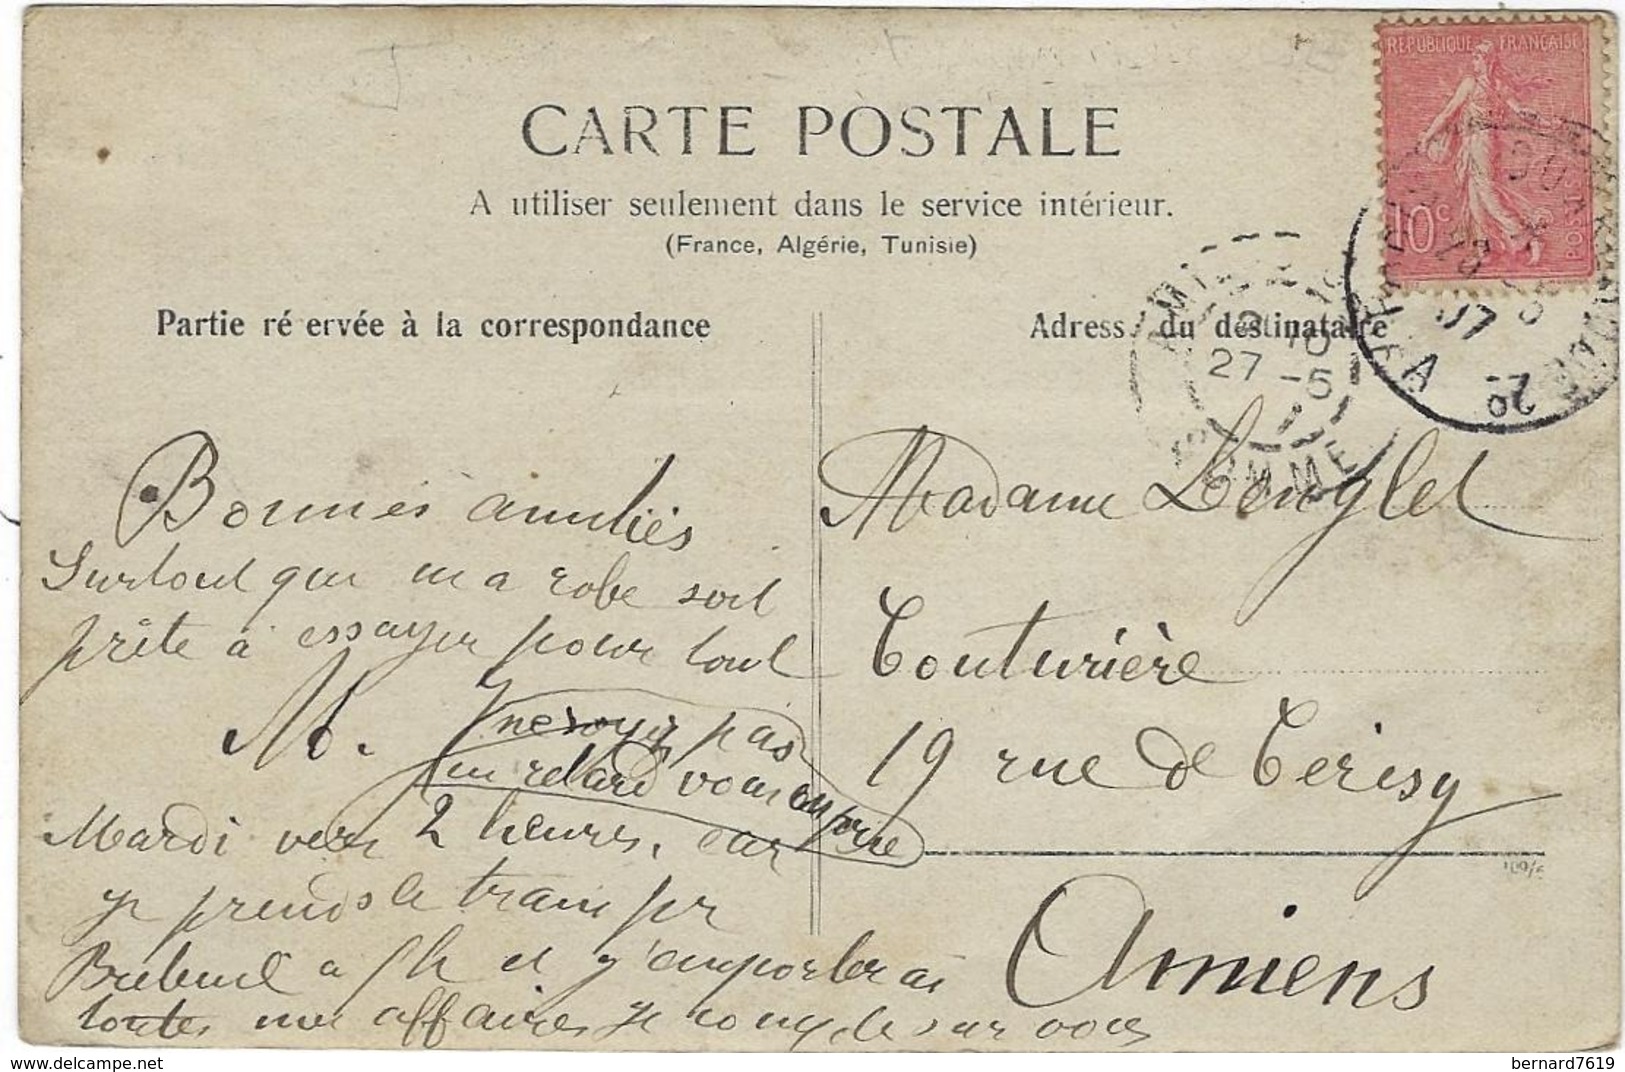 RÉPUBLIQUE FRANÇAISE
10c
POSTES
CARTE POSTALE
A utiliser seulement dans le service intérieur.
(France, Algérie, Tunisie)
Partie ré ervée à la correspondance
Adress du destinataire
27 -5
SOMME
07
Bonnes amitiés
Surtout que ma robe soit
prête à essayer pour tout
M. ne soyez pas
en retard vous
Mardi vers 2 heures, car
je prends le train pr
Breteuil a 5h et j'emporterai
toutes mes affaires je compte sur vous
Madame Lenglet
Couturière
19 rue de Cerisy
Amiens
delcampe.net
bernard7619